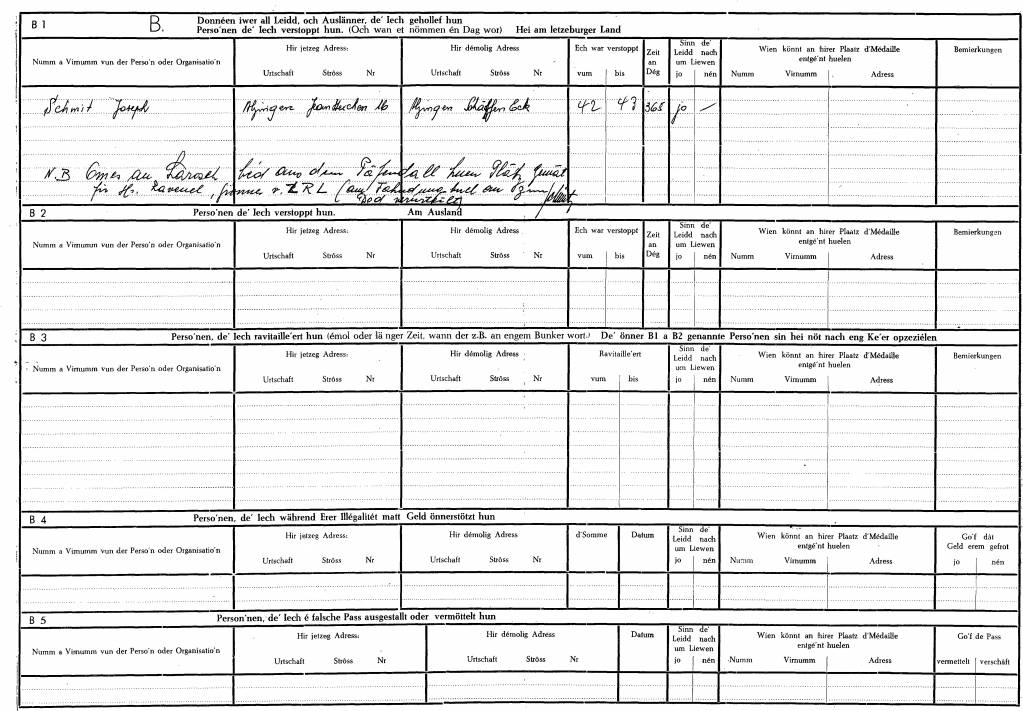 B 1 B. Donnéen iwer all Leidd, och Auslänner, de' Iech gehollef hun
Perso'nen de' Iech verstoppt hun. (Och wan et nömmen én Dag wor) Hei am letzeburger Land
Numm a Virnumm vun der Perso'n oder Organisatio'n Hir jetzeg Adress: Hir démolig Adress Ech war verstoppt Zeit an Dég Sinn de' Leidd nach um Liewen Wien könnt an hirer Plaatz d'Médaille entgé'nt huelen Bemierkungen
Urtschaft Ströss Nr Urtschaft Ströss Nr vum bis jo nén Numm Virnumm Adress
Schmit Joseph Alzingen 16 Alzingen Eck 42 43 365 jo —
N.B an aus dem
fir v. LRL
B 2 Perso'nen de' Iech verstoppt hun. Am Ausland
Numm a Virnumm vun der Perso'n oder Organisatio'n Hir jetzeg Adress: Hir démolig Adress Ech war verstoppt Zeit an Dég Sinn de' Leidd nach um Liewen Wien könnt an hirer Plaatz d'Médaille entgé'nt huelen Bemierkungen
Urtschaft Ströss Nr Urtschaft Ströss Nr vum bis jo nén Numm Virnumm Adress
B 3 Perso'nen, de' Iech ravitaille'ert hun (émol oder lä nger Zeit, wann der z.B. an engem Bunker wort.) De' önner B1 a B2 genannte Perso'nen sin hei nöt nach eng Ke'er opzeziélen
Numm a Virnumm vun der Perso'n oder Organisatio'n Hir jetzeg Adress: Hir démolig Adress Ravitaille'ert Sinn de' Leidd nach um Liewen Wien könnt an hirer Plaatz d'Médaille entgé'nt huelen Bemierkungen
Urtschaft Ströss Nr Urtschaft Ströss Nr vum bis jo nén Numm Virnumm Adress
B 4 Perso'nen, de' Iech während Erer Illégalitét matt Geld önnerstötzt hun
Numm a Virnumm vun der Perso'n oder Organisatio'n Hir jetzeg Adress: Hir démolig Adress d'Somme Datum Sinn de' Leidd nach um Liewen Wien könnt an hirer Plaatz d'Médaille entgé'nt huelen Go'f dât Geld erem gefrot
Urtschaft Ströss Nr Urtschaft Ströss Nr jo nén Numm Virnumm Adress jo nén
B 5 Person'nen, de' Iech é falsche Pass ausgestallt oder vermöttelt hun
Numm a Virnumm vun der Perso'n oder Organisatio'n Hir jetzeg Adress: Hir démolig Adress Datum Sinn de' Leidd nach um Liewen Wien könnt an hirer Plaatz d'Médaille entgé'nt huelen Go'f de Pass
Urtschaft Ströss Nr Urtschaft Ströss Nr jo nén Numm Virnumm Adress vermettelt verschâft